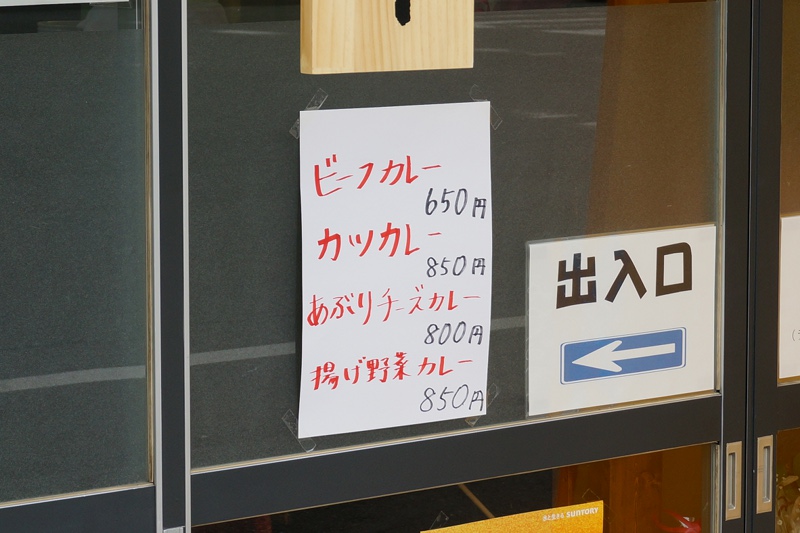 ビーフカレー
650円
カツカレー
850円
あぶりチーズカレー
800円
揚げ野菜カレー
850円
出入口
水と生きる SUNTORY